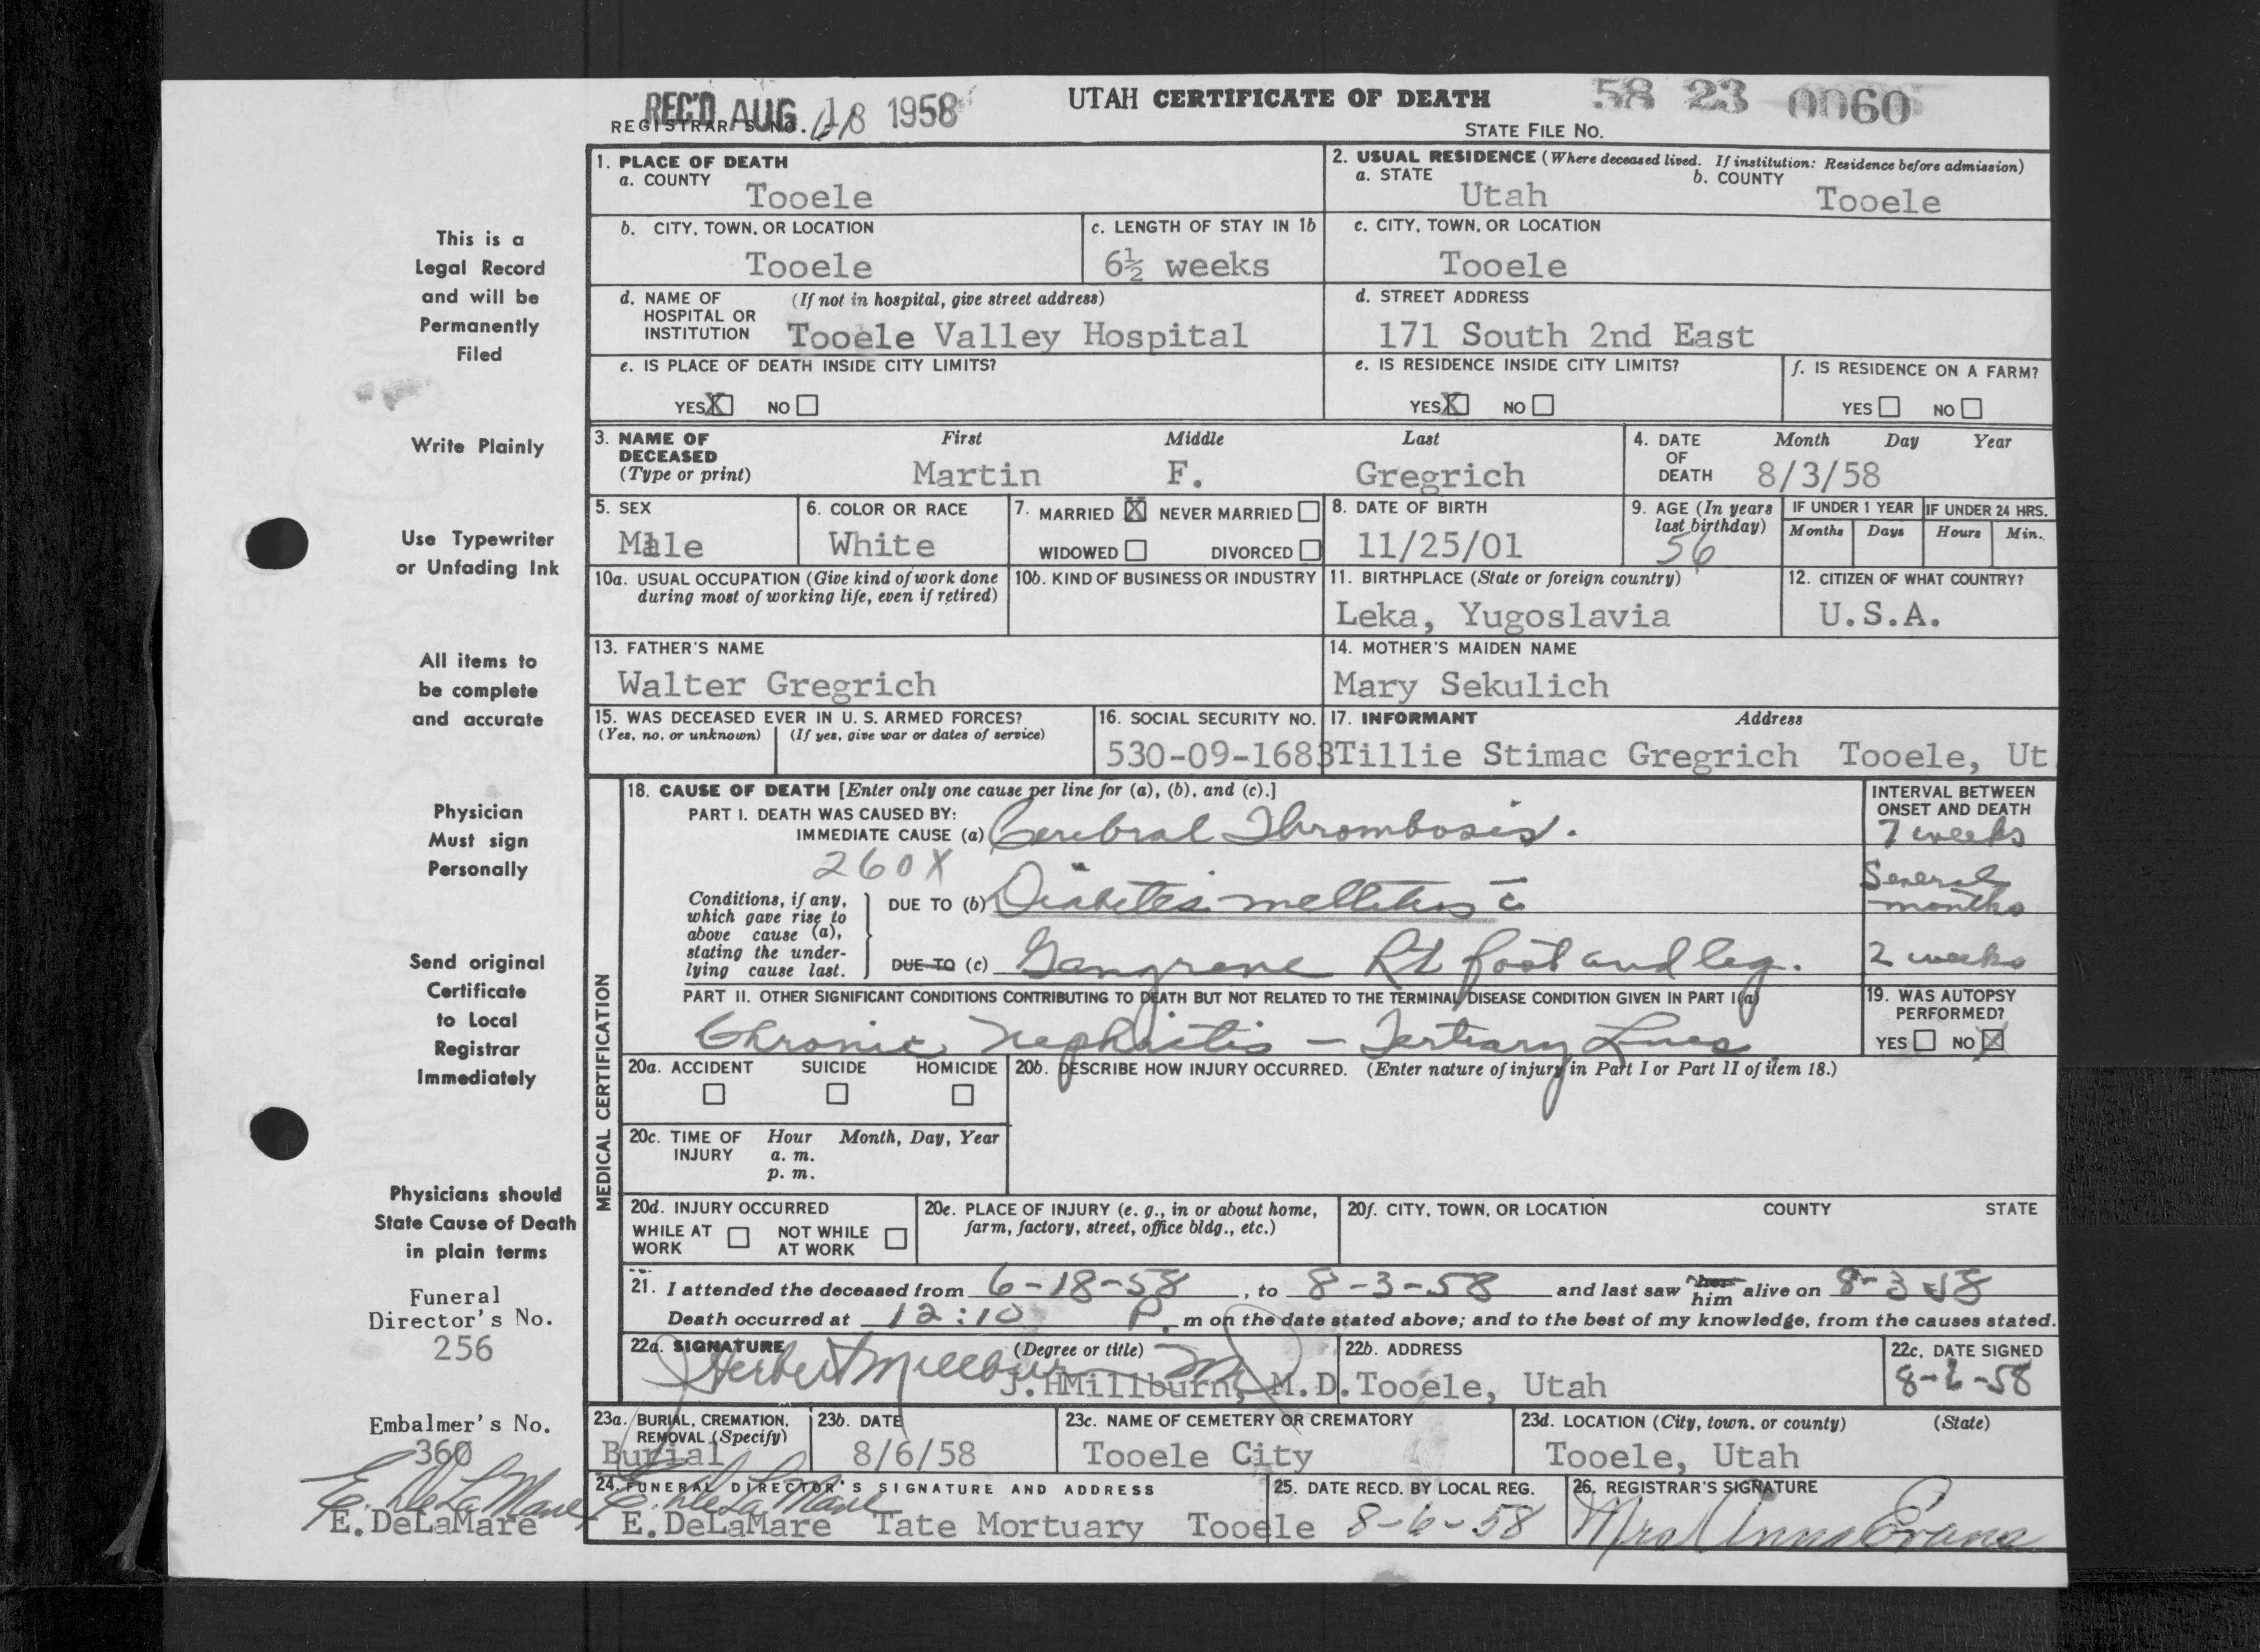 REC'D AUG 18 1958
UTAH CERTIFICATE OF DEATH
58 23 0060
REGISTRAR'S NO. 61
STATE FILE No.
1. PLACE OF DEATH
a. COUNTY Tooele
2. USUAL RESIDENCE (Where deceased lived. If institution: Residence before admission)
a. STATE Utah b. COUNTY Tooele
b. CITY, TOWN, OR LOCATION Tooele
c. LENGTH OF STAY IN 1b 6½ weeks
c. CITY, TOWN, OR LOCATION Tooele
d. NAME OF HOSPITAL OR INSTITUTION (If not in hospital, give street address) Tooele Valley Hospital
d. STREET ADDRESS 171 South 2nd East
e. IS PLACE OF DEATH INSIDE CITY LIMITS? YES X NO
e. IS RESIDENCE INSIDE CITY LIMITS? YES X NO
f. IS RESIDENCE ON A FARM? YES NO
3. NAME OF DECEASED (Type or print) First Middle Last
Martin F. Gregrich
4. DATE OF DEATH Month Day Year
8/3/58
5. SEX Male
6. COLOR OR RACE White
7. MARRIED X NEVER MARRIED WIDOWED DIVORCED
8. DATE OF BIRTH 11/25/01
9. AGE (In years last birthday) 56
IF UNDER 1 YEAR Months Days
IF UNDER 24 HRS. Hours Min.
10a. USUAL OCCUPATION (Give kind of work done during most of working life, even if retired)
10b. KIND OF BUSINESS OR INDUSTRY
11. BIRTHPLACE (State or foreign country) Leka, Yugoslavia
12. CITIZEN OF WHAT COUNTRY? U.S.A.
13. FATHER'S NAME Walter Gregrich
14. MOTHER'S MAIDEN NAME Mary Sekulich
15. WAS DECEASED EVER IN U. S. ARMED FORCES?
(Yes, no, or unknown) (If yes, give war or dates of service)
16. SOCIAL SECURITY NO. 530-09-1683
17. INFORMANT Address
Tillie Stimac Gregrich Tooele, Ut
MEDICAL CERTIFICATION
18. CAUSE OF DEATH [Enter only one cause per line for (a), (b), and (c).]
INTERVAL BETWEEN ONSET AND DEATH
PART I. DEATH WAS CAUSED BY:
IMMEDIATE CAUSE (a) Cerebral Thrombosis. 7 weeks
260X
Conditions, if any, which gave rise to above cause (a), stating the underlying cause last.
DUE TO (b) Diabetes mellitus c̄ Several months
DUE TO (c) Gangrene Rt foot and leg. 2 weeks
PART II. OTHER SIGNIFICANT CONDITIONS CONTRIBUTING TO DEATH BUT NOT RELATED TO THE TERMINAL DISEASE CONDITION GIVEN IN PART I(a)
Chronic Nephritis – Tertiary Lues
19. WAS AUTOPSY PERFORMED? YES NO X
20a. ACCIDENT SUICIDE HOMICIDE
20b. DESCRIBE HOW INJURY OCCURRED. (Enter nature of injury in Part I or Part II of item 18.)
20c. TIME OF INJURY Hour Month, Day, Year
a. m.
p. m.
20d. INJURY OCCURRED
WHILE AT WORK NOT WHILE AT WORK
20e. PLACE OF INJURY (e. g., in or about home, farm, factory, street, office bldg., etc.)
20f. CITY, TOWN, OR LOCATION COUNTY STATE
21. I attended the deceased from 6-18-58, to 8-3-58 and last saw her him alive on 8-3-58
Death occurred at 12:10 P. m on the date stated above; and to the best of my knowledge, from the causes stated.
22a. SIGNATURE (Degree or title)
J. Herbert Millburn MD
J.HMillburn, M.D.
22b. ADDRESS Tooele, Utah
22c. DATE SIGNED 8-6-58
23a. BURIAL, CREMATION, REMOVAL (Specify) Burial
23b. DATE 8/6/58
23c. NAME OF CEMETERY OR CREMATORY Tooele City
23d. LOCATION (City, town, or county) (State) Tooele, Utah
24. FUNERAL DIRECTOR'S SIGNATURE AND ADDRESS
E. DeLaMare
E.DeLaMare Tate Mortuary Tooele
25. DATE RECD. BY LOCAL REG. 8-6-58
26. REGISTRAR'S SIGNATURE
Mrs Anna Evans
This is a
Legal Record
and will be
Permanently
Filed
Write Plainly
Use Typewriter
or Unfading Ink
All items to
be complete
and accurate
Physician
Must sign
Personally
Send original
Certificate
to Local
Registrar
Immediately
Physicians should
State Cause of Death
in plain terms
Funeral
Director's No.
256
Embalmer's No.
360
E. DeLaMare
E.DeLaMare